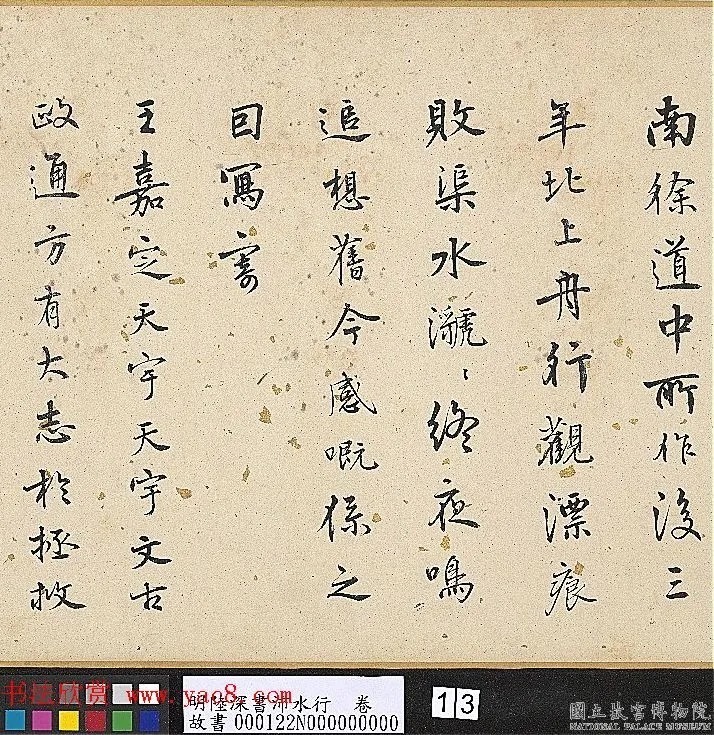 南徐道中所作後三
年北上舟行觀漂痕
敗渠水㶁〻終夜鳴
追想舊今感嘅係之
囙寫寄
王嘉定天宇天宇文古
政通方有大志於拯救
书法欣赏 www.yac8.com
明陸深書沛水行 卷
故書 000122N000000000
13
國立故宮博物院
NATIONAL PALACE MUSEUM